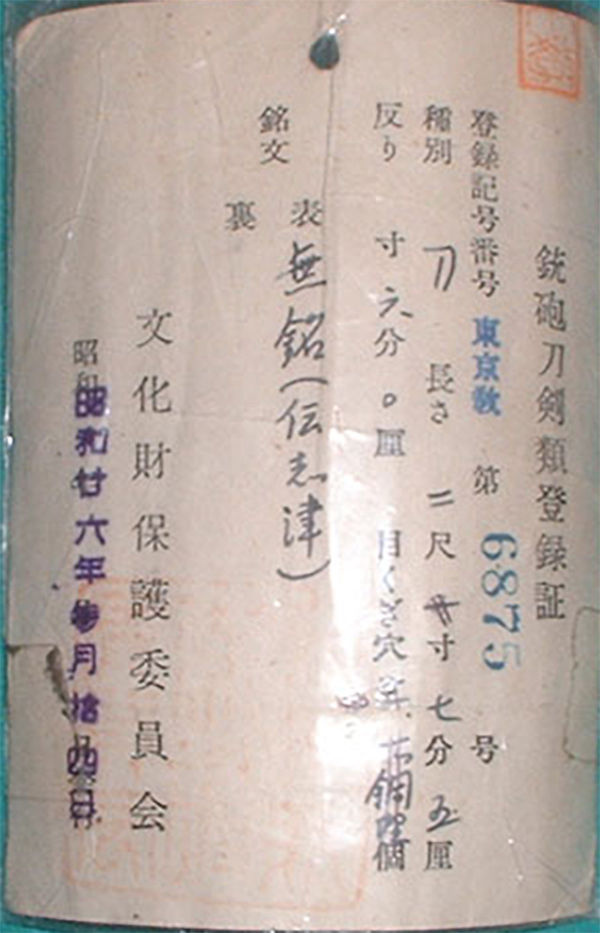 銃砲刀剣類登録証
登録記号番号 東京教 第 6875 号
種別 刀 長さ 二尺 寸 七分 五厘
反り 寸 六分 〇厘 目くぎ穴 個
銘文 表 無銘(伝志津)
裏
文化財保護委員会
昭和廿六年参月拾四日